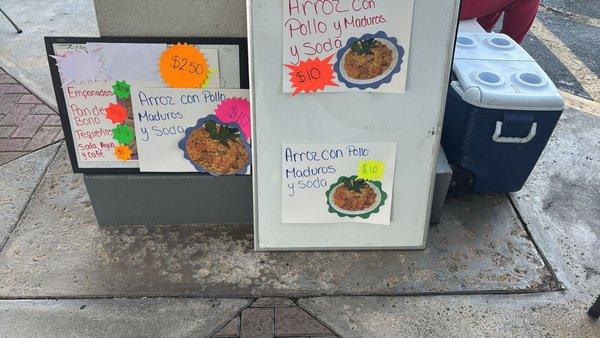 $2.50
Empanadas
$2.50
Pan de
Bono
Tequeños
Soda, Agua
y café
$1
Arroz con Pollo
Maduros
y Soda
$10
Arroz con
Pollo y Maduros.
y Soda
$10
Arroz con Pollo
Maduros
y Soda
$10